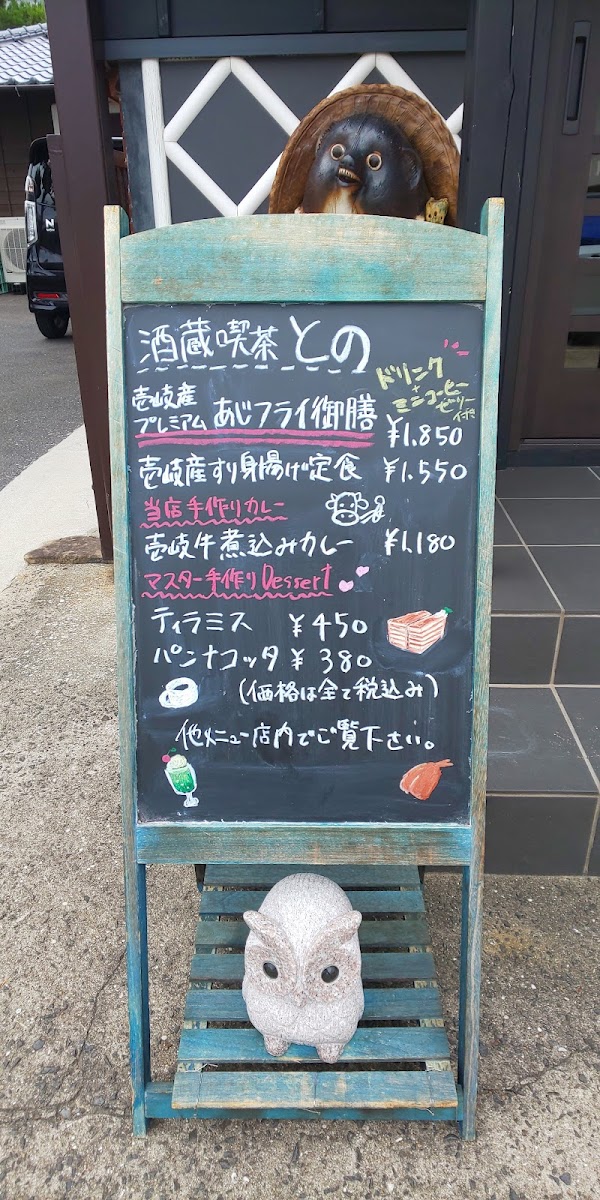 酒蔵喫茶 との
ドリンク
+
ミニコーヒー
ゼリー
付き
壱岐産
プレミアム あじフライ御膳 ¥1.850
壱岐産すり身揚げ定食 ¥1.550
当店手作りカレー
壱岐牛煮込みカレー ¥1.180
マスター手作りDessert
ティラミス ¥450
パンナコッタ ¥380
(価格は全て税込み)
他メニュー店内でご覧下さい。
N